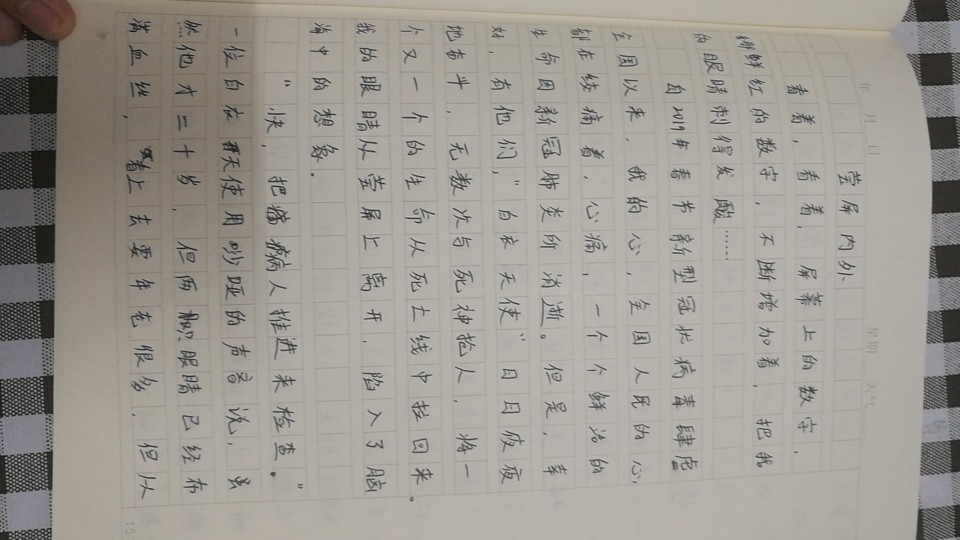 年 月 日 星期 天气
荧屏内外
看着，看着，屏幕上的数字，
鲜红的数字，不断增加着，把我
的眼睛刺得发酸……
自2019年春节新型冠状病毒肆虐
全国以来，我的心，全国人民的心，
都在绞痛着，心痛，一个个鲜活的
生命因新冠肺炎所消逝。但是，幸
好，有他们，“白衣天使”日日疲疲
地奋斗，无数次与死神抢人，将一
个又一个的生命从死亡线中拉回来。
我的眼睛从荧屏上离开，陷入了脑
海中的想象。
“快，把病人推进来检查。”
一位白衣天使用吵哑的声音说，虽
然他才二十岁，但两眼睛已经布
满血丝，看上去要年老很多，但从
15